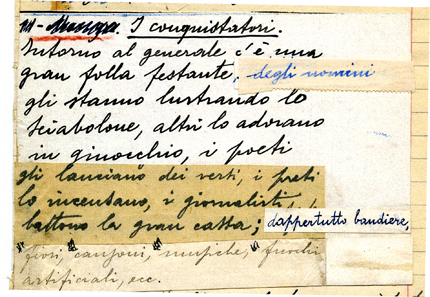 I conquistatori.
Intorno al generale c'è una
gran folla festante, degli uomini
gli stanno lustrando lo
sciabolone, altri lo adorano
in ginocchio, i poeti
gli lanciano dei versi, i preti
lo incensano, i giornalisti,
battono la gran cassa; dappertutto bandiere,
fiori, canzoni, musiche, fuochi
artificiali, ecc.